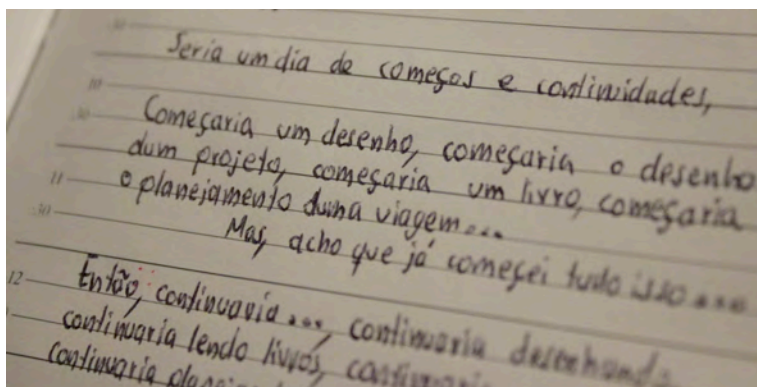 Seria um dia de começos e continuidades,
Começaria um desenho, começaria o desenho
dum projeto, começaria um livro, começaria
o planejamento duma viagem...
Mas, acho que já comecei tudo isso...
Então, continuaria..., continuaria desenhando
continuaria lendo livros, continuaria
continuaria